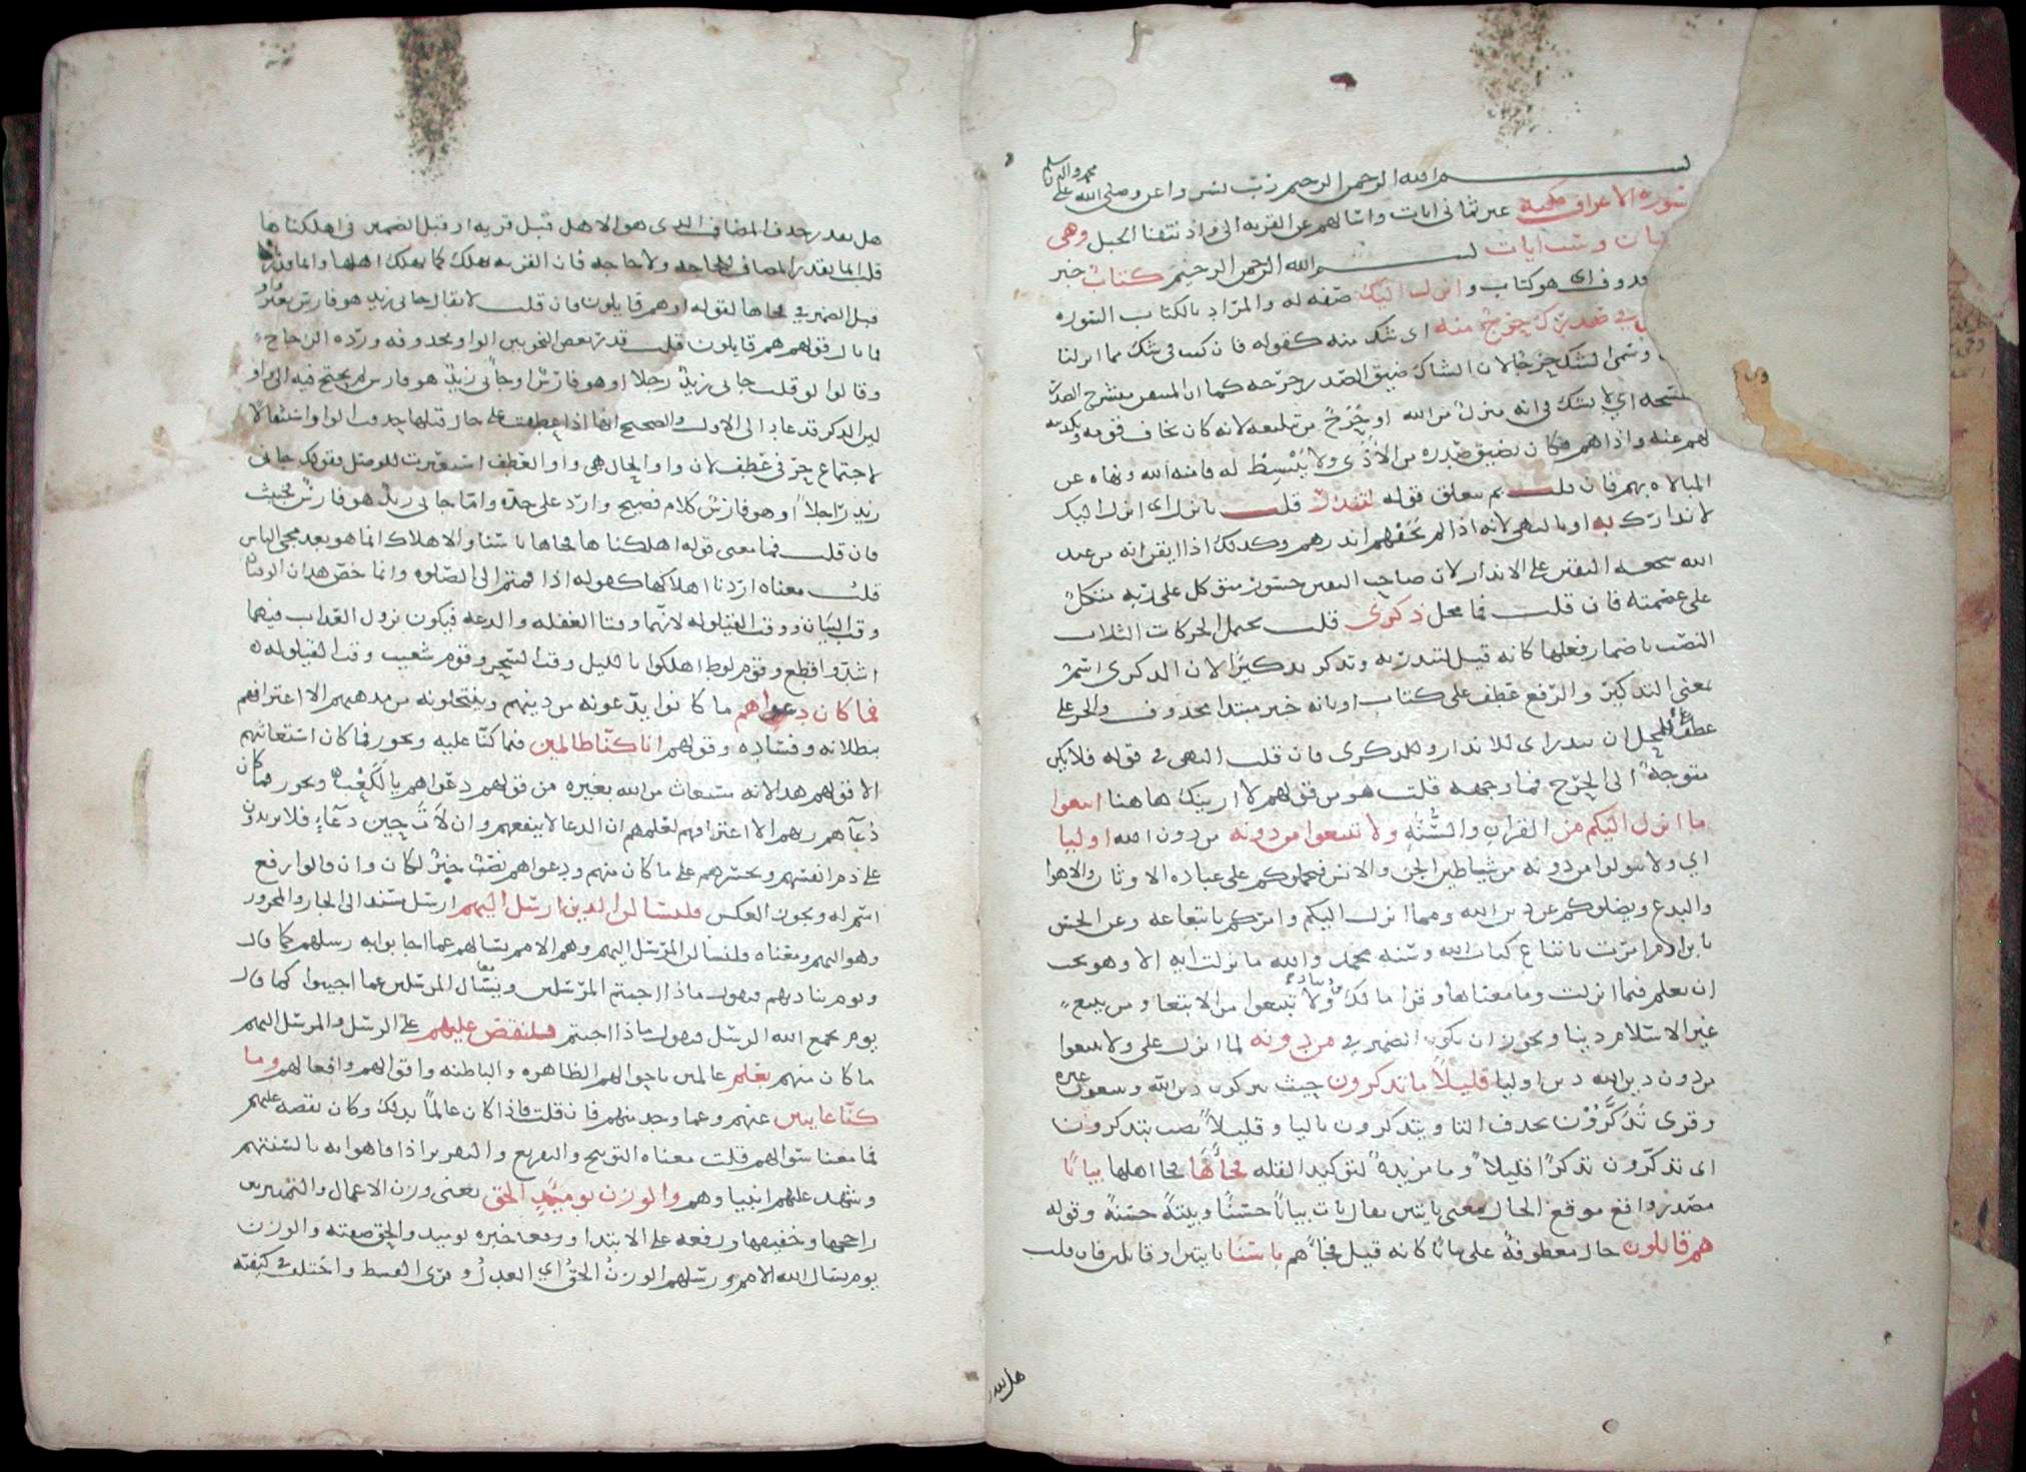 بسم الله الرحمن الرحيم رب يسر واعن وصلى الله على محمد واله وسلم
سوره الاعراف مكيه غير ثماني ايات واسالهم عن القريه الى واذ نتقنا الجبل وهي
مايتان وست ايات بسم الله الرحمن الرحيم كتاب خبر
محذوف اي هو كتاب وانزل اليك صفه له والمراد بالكتاب السوره
في صدرك حرج منه اي شك منه كقوله فان كنت في شك مما انزلنا
وسمى الشك حرجا لان الشاك ضيق الصدر حرجه كما ان المتيقن منشرح الصدر
منفسحه اي لا تشك في انه منزل من الله او حرج من تبليغه لانه كان يخاف قومه وتكذيبهم
لهم عنه واذاهم فكان يضيق صدره من الاذى ولا ينبسط له فامنه الله ونهاه عن
المبالاه بهم فان قلت بم يتعلق قوله لتنذر قلت بانزل اي انزل اليك
لانذارك به او بالنهي لانه اذا لم يخفهم انذرهم وكذلك اذا ايقن انه من عند
الله شجعه اليقين على الانذار لان صاحب اليقين جسور متوكل على ربه متكل
على عصمته فان قلت فما محل ذكرى قلت يحتمل الحركات الثلاث
النصب باضمار فعلها كانه قيل لتنذر به وتذكر تذكيرا لان الذكرى اسم
بمعنى التذكير والرفع عطف على كتاب او بانه خبر مبتدا محذوف والجر على
عطف على محل ان تنذر اي للانذار وللذكرى فان قلت النهي في قوله فلا يكن
متوجه الى الحرج فما وجهه قلت هو من قولهم لا ارينك هاهنا اتبعوا
ما انزل اليكم من القران والسنه ولا تتبعوا من دونه من دون الله اوليا
اي ولا تتولوا من دونه من شياطين الجن والانس فيحملوكم على عباده الاوثان والاهوا
والبدع ويضلوكم عن دين الله وما انزل اليكم وامركم باتباعه وعن الحسن
يا بن ادم امرت باتباع كتاب الله وسنه محمد والله ما نزلت ايه الا وهو يحب
ان تعلم فيما انزلت وما معناها وقرا مالك ولا تبتغوا من الابتغا ومن يبتغ
غير الاسلام دينا ويجوز ان يكون الضمير في من دونه لما انزل على ولا تتبعوا
من دون دين الله دين اوليا قليلا ما تذكرون حيث تتركون دين الله وتتبعون غيره
وقرى تذكرون بحذف التا ويتذكرون باليا وقليلا نصب بتذكرون
اي تذكرون تذكرا قليلا وما مزيده لتوكيد القله فجاها فجا اهلها بياتا
مصدر واقع موقع الحال بمعنى بايتين يقال بات بياتا حسنا وبيته حسنه وقوله
هم قايلون حال معطوفه على بياتا كانه قيل فجاهم باسنا بايتين او قايلين فان قلت
هل يقدر
هل يقدر حذف المضاف الذي هو الاهل قبل قريه او قبل الضمير في اهلكناها
قلت انما يقدر المضاف للحاجه ولا حاجه فان القريه تهلك كما يهلك اهلها وانما قدرناه
قبل الضمير في فجاها لقوله او هم قايلون فان قلت لا يقال جاني زيد هو فارس بغير واو
فما بال قولهم هم قايلون قلت قدر بعض النحويين الواو محذوفه ورده الزجاج
وقالوا لو قلت جاني زيد رجلا او هو فارس او جاني زيد هو فارس لم يحتج فيه الى واو
لان الذكر قد عاد الى الاول والصحيح انها اذا عطفت على حال قبلها حذفت الواو استثقالا
لاجتماع حرفي عطف لان واو الحال هي واو العطف استعيرت للوصل فقولك جاني
زيد راجلا او هو فارس كلام فصيح وارد على حده واما جاني زيد هو فارس فخبيث
فان قلت فما معنى قوله اهلكناها فجاها باسنا والاهلاك انما هو بعد مجي الباس
قلت معناه اردنا اهلاكها كقوله اذا قمتم الى الصلوه وانما خص هذان الوقتان
وقت البيات ووقت القيلوله لانهما وقتا الغفله والدعه فيكون نزول العذاب فيهما
اشد وافظع وقوم لوط اهلكوا بالليل وقت السحر وقوم شعيب وقت القيلوله
فما كان دعواهم ما كانوا يدعونه من دينهم وينتحلونه من مذهبهم الا اعترافهم
ببطلانه وفساده وقولهم انا كنا ظالمين فيما كنا عليه ويجوز فما كان استغاثتهم
الا قولهم هذا لانه مستغاث من الله بغيره من قولهم دعواهم يا لكعب ويجوز فما كان
دعاهم ربهم الا اعترافهم لعلمهم ان الدعا لا ينفعهم وان لات حين دعاء فلا يزيدون
على ذم انفسهم وتحسرهم على ما كان منهم ودعواهم نصب خبر لكان وان قالوا رفع
اسم له ويجوز العكس فلنسالن الذين ارسل اليهم ارسل مسند الى الجار والمجرور
وهو اليهم ومعناه فلنسالن المرسل اليهم وهم الامم يسالهم عما اجابوا به رسلهم كما قال
ويوم يناديهم فيقول ماذا اجبتم المرسلين ويسال المرسلين عما اجيبوا كما قال
يوم يجمع الله الرسل فيقول ماذا اجبتم فلنقصن عليهم على الرسل والمرسل اليهم
ما كان منهم بعلم عالمين باحوالهم الظاهره والباطنه واقوالهم وافعالهم وما
كنا غايبين عنهم وعما وجد منهم فان قلت فاذا كان عالما بذلك وكان يقصه عليهم
فما معنا سوالهم قلت معناه التوبيخ والتقريع والتقرير اذا فاهوا به بالسنتهم
وشهد عليهم انبياوهم والوزن يوميذ الحق يعني وزن الاعمال والتمييز بين
راجحها وخفيفها ورفعه على الابتدا ورفعه خبره يوميذ والحق صفته والوزن
يوم يسال الله الامم ورسلهم الوزن الحق اي العدل وقرى القسط واختلف في كيفيته